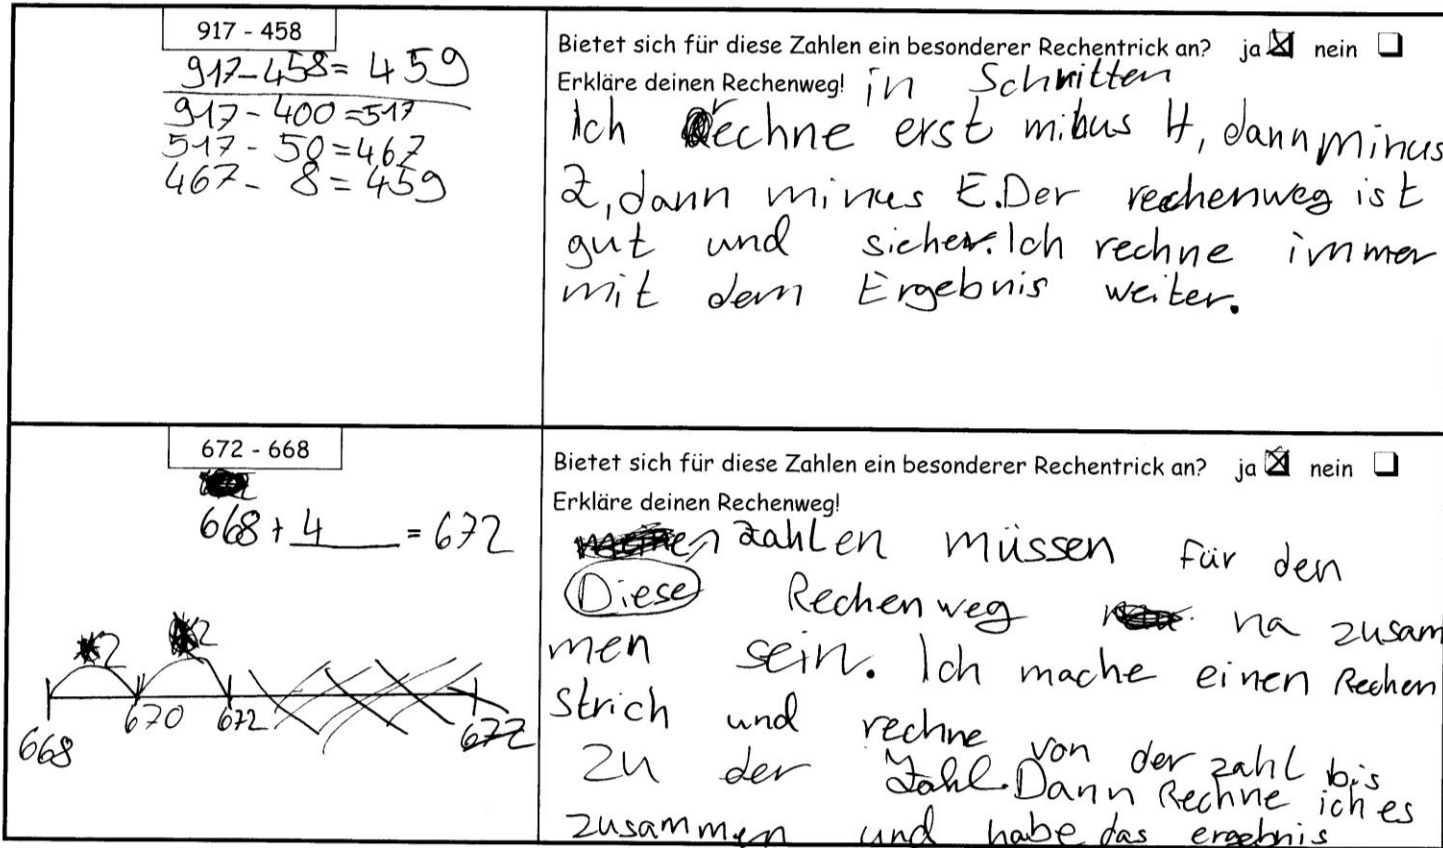 917 - 458
917-458= 459
917- 400=517
517- 50=467
467- 8= 459
Bietet sich für diese Zahlen ein besonderer Rechentrick an? ja ☒ nein ☐
Erkläre deinen Rechenweg! in Schritten
Ich rechne erst mibus H, dann minus
Z, dann minus E. Der rechenweg ist
gut und sicher. Ich rechne immer
mit dem Ergebnis weiter.
672 - 668
668 + 4 = 672
2 2
668 670 672 672
Bietet sich für diese Zahlen ein besonderer Rechentrick an? ja ☒ nein ☐
Erkläre deinen Rechenweg!
zahlen müssen für den
Diese Rechenweg na zusam
men sein. Ich mache einen Rechen
strich und rechne von der zahl bis
zu der Zahl. Dann Rechne ich es
zusammen und habe das ergebnis